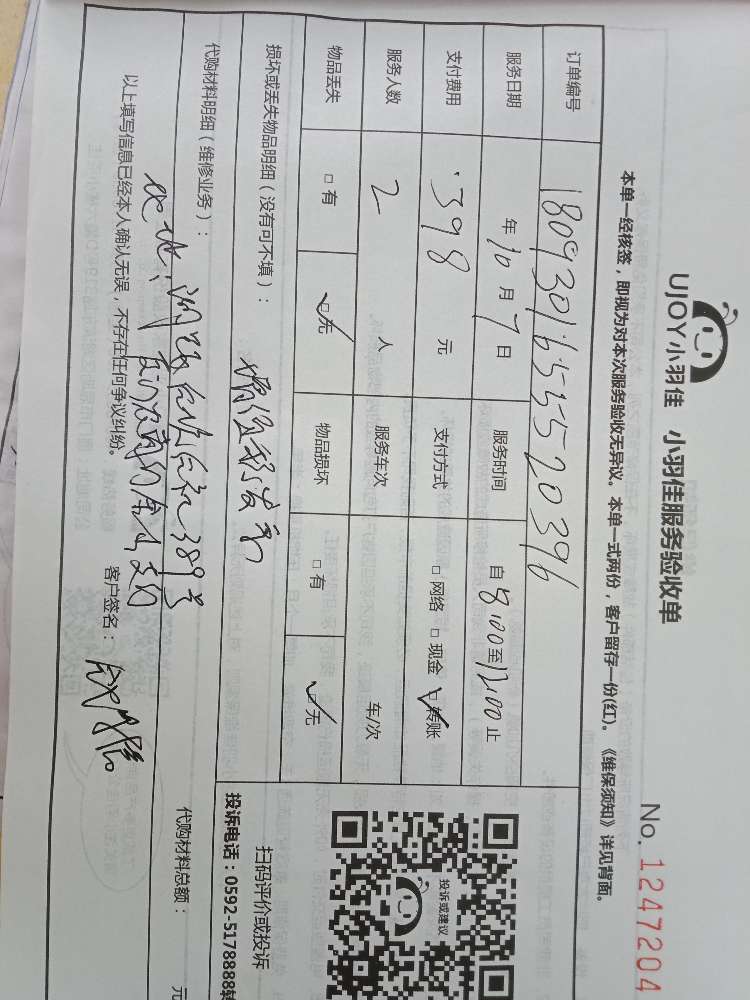 UJOY小羽佳 小羽佳服务验收单
No. 1247204
本单一经核签，即视为对本次服务验收无异议。本单一式两份，客户留存一份(红)。《维保须知》详见背面。
订单编号 1809301655520396
服务日期 年10月7日 服务时间 自8:00至12:00止
支付费用 398元 支付方式 □网络 □现金 ☑转账
服务人数 2人 服务车次 车/次
物品丢失 □有 ☑无 物品损坏 □有 ☑无
损坏或丢失物品明细（没有可不填）：
增值税发票
代购材料明细（维修业务）：
代购材料总额： 元
地址：
389号
以上填写信息已经本人确认无误，不存在任何争议纠纷。
客户签名：
投诉或建议
扫码评价或投诉
投诉电话：0592-5178888转